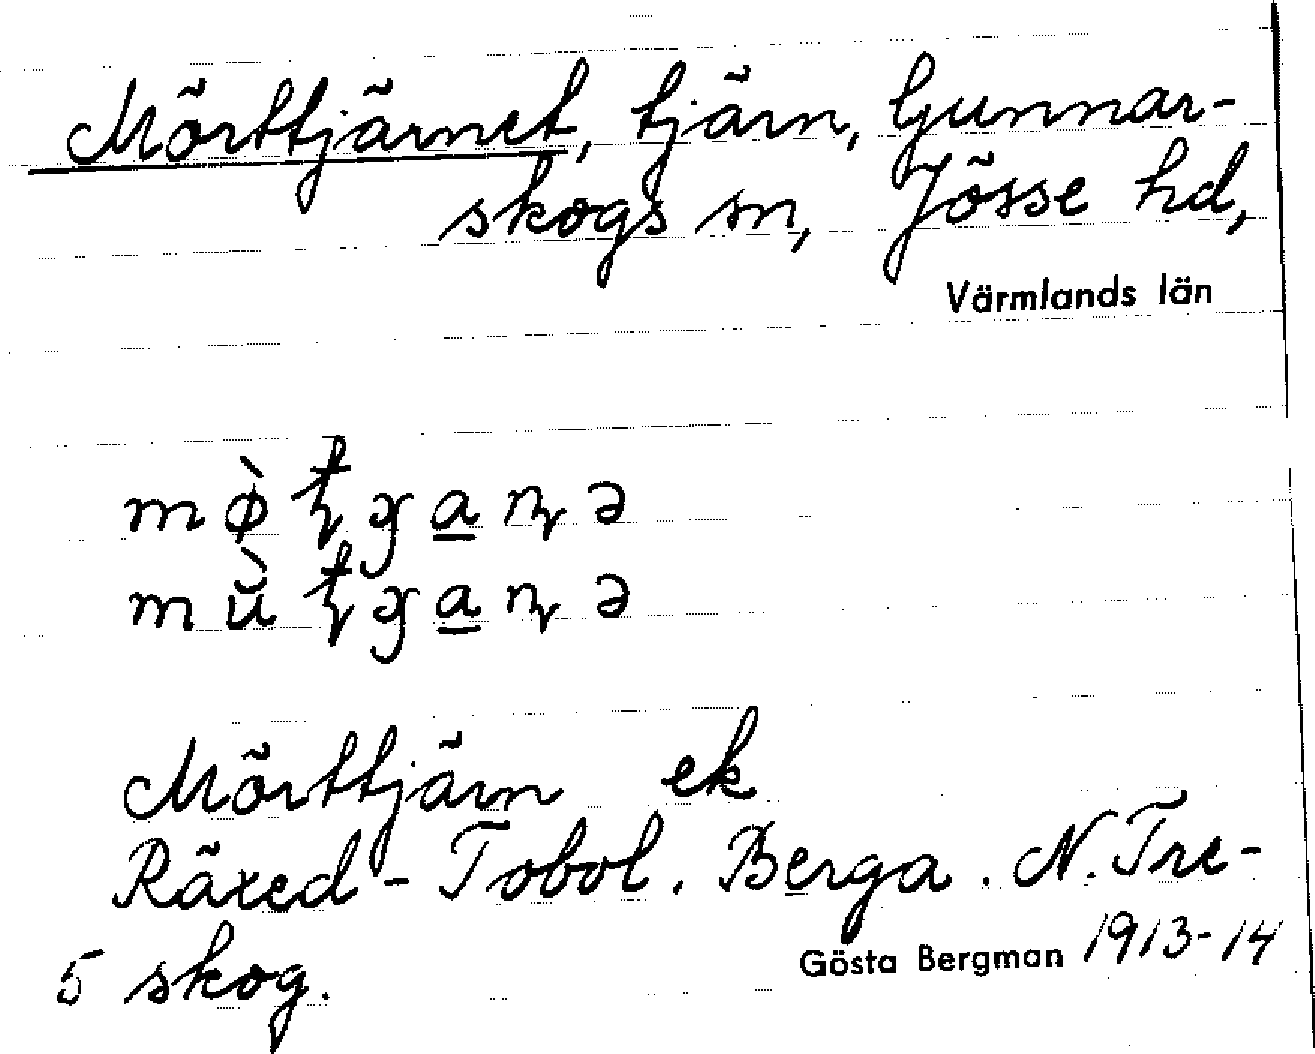 Mörttjärnet, tjärn, Gunnar-
skogs sn, Jösse hd,
Värmlands län
Mörttjärn ek
Räxed - Tobol. Berga. N. Tre-
skog.
5
Gösta Bergman 1913-14